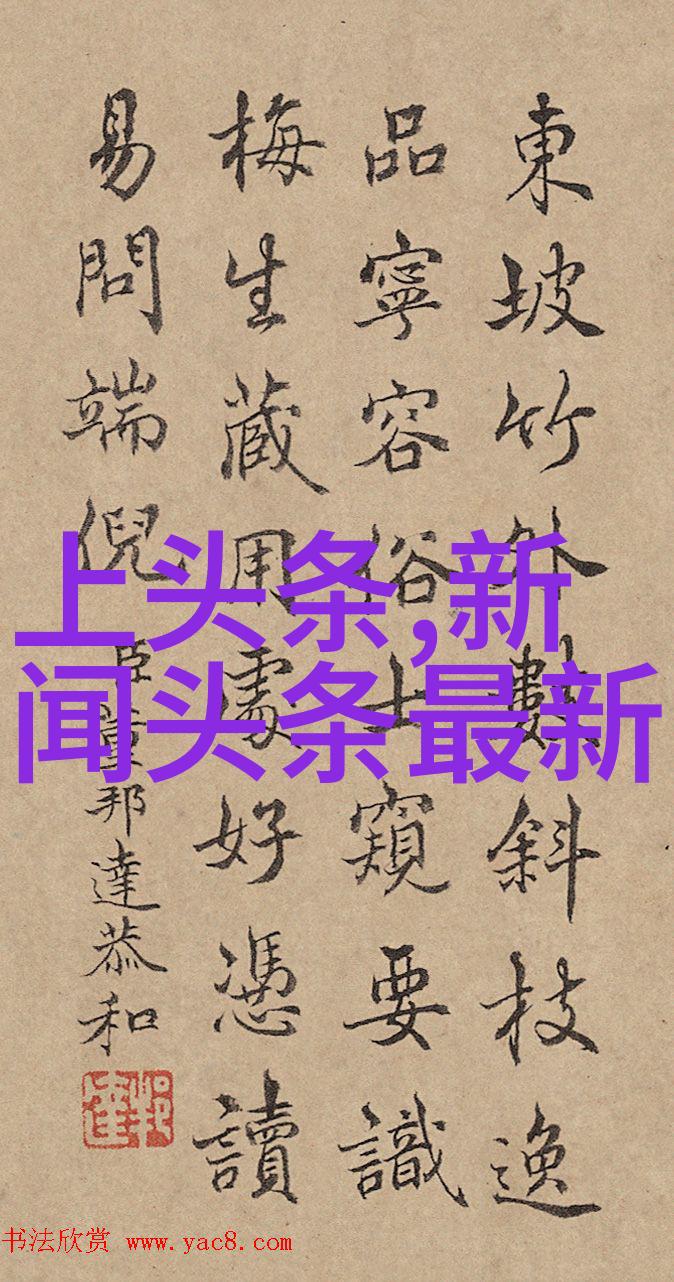 東坡竹外數斜枝逸
品寧容俗士窺要識
梅生藏用處好憑讀
易問端倪
臣董邦達恭和
上头条,新
闻头条最新
书法欣赏 www.yac8.com